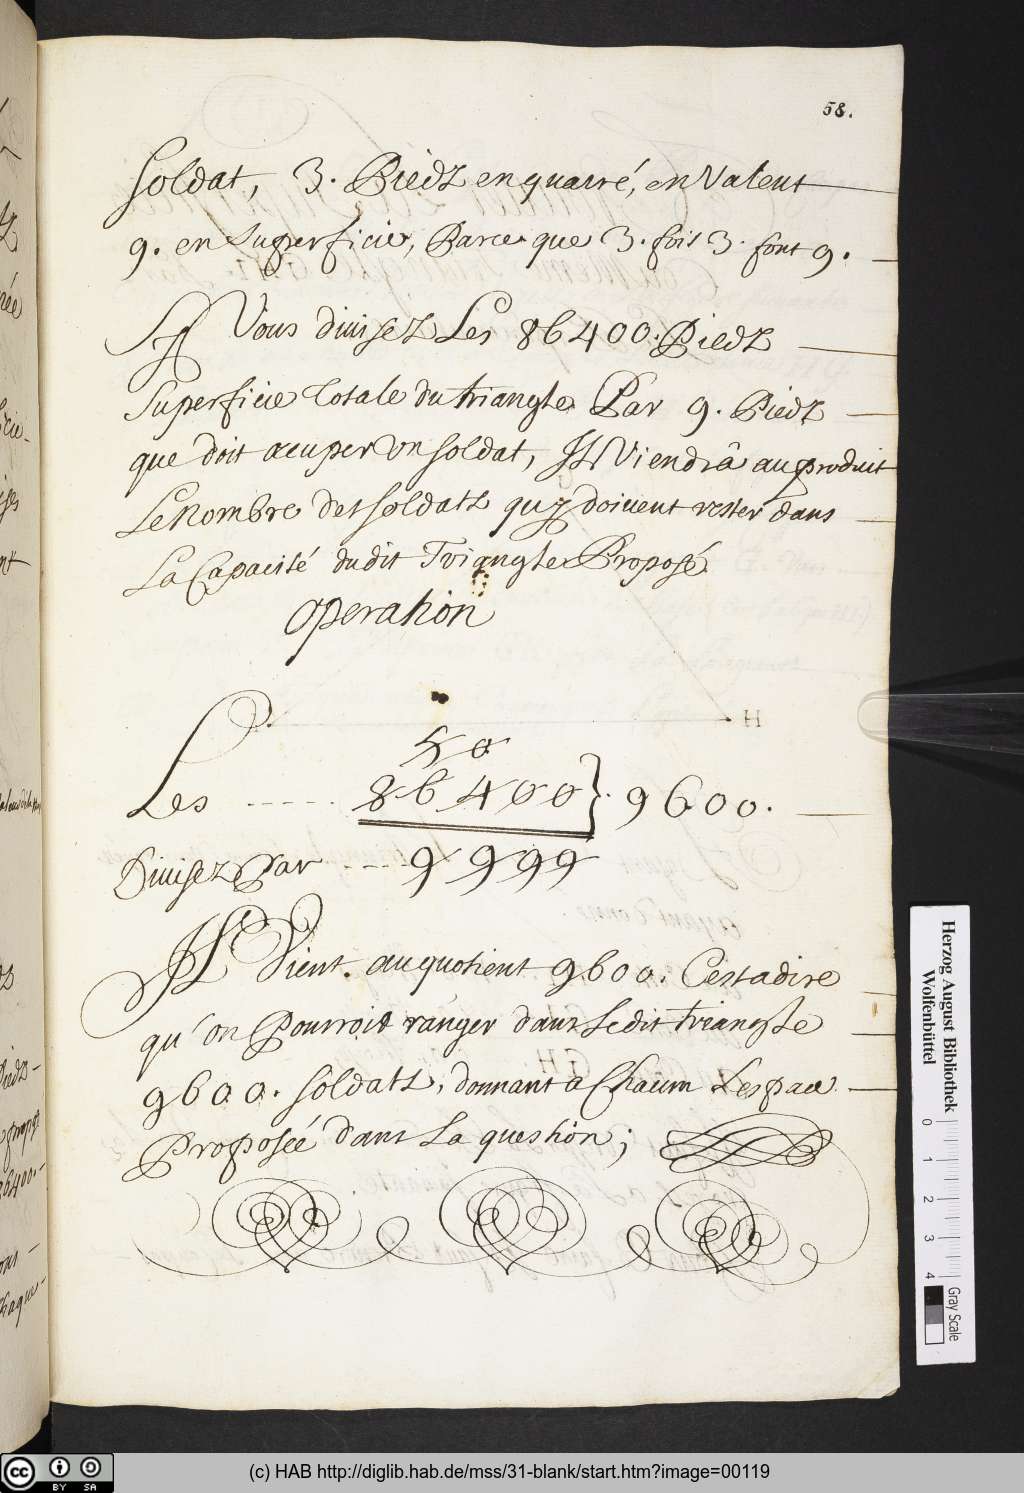 58.
soldat, 3. Piedz en quarré, en Valent
9. en superficie, Parce que 3. fois 3. font 9.
Si Vous diuisez Les 86400. Piedz
superficie totale du triangle Par 9. Piedz
que doit acuper vn soldat, Il Viendrâ au produit
Le nombre des soldatz quy doiuent rester dans
La Capacité dudit Triangle Proposé
operation
H
50
Les ----- 86400 } 9600.
Diuisez Par ---- 9 9 9 9
Il Vient. au quotient 9600. Cestadire
qu'on Pourroit ranger dans Ledit triangle
9600. soldatz, donnant a Chacun Lespace
Proposée dans La question;
Herzog August Bibliothek
Wolfenbüttel
0 1 2 3 4
Gray Scale
cc BY SA
(c) HAB http://diglib.hab.de/mss/31-blank/start.htm?image=00119